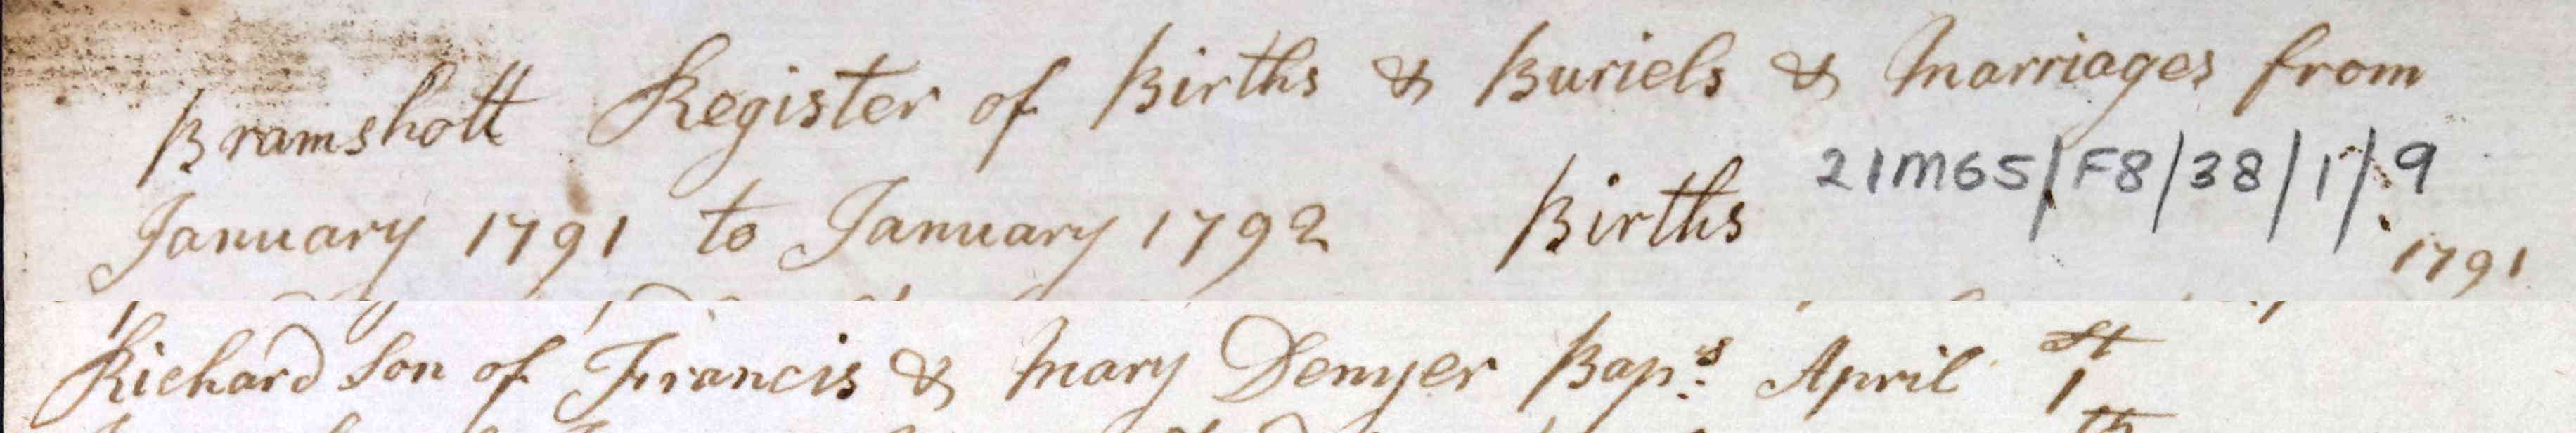 Bramshott Register of Births & Buriels & Marriages from
January 1791 to January 1792 Births 21M65/F8/38/1/9
1791
Richard Son of Francis & Mary Denyer Bap.s April 1st